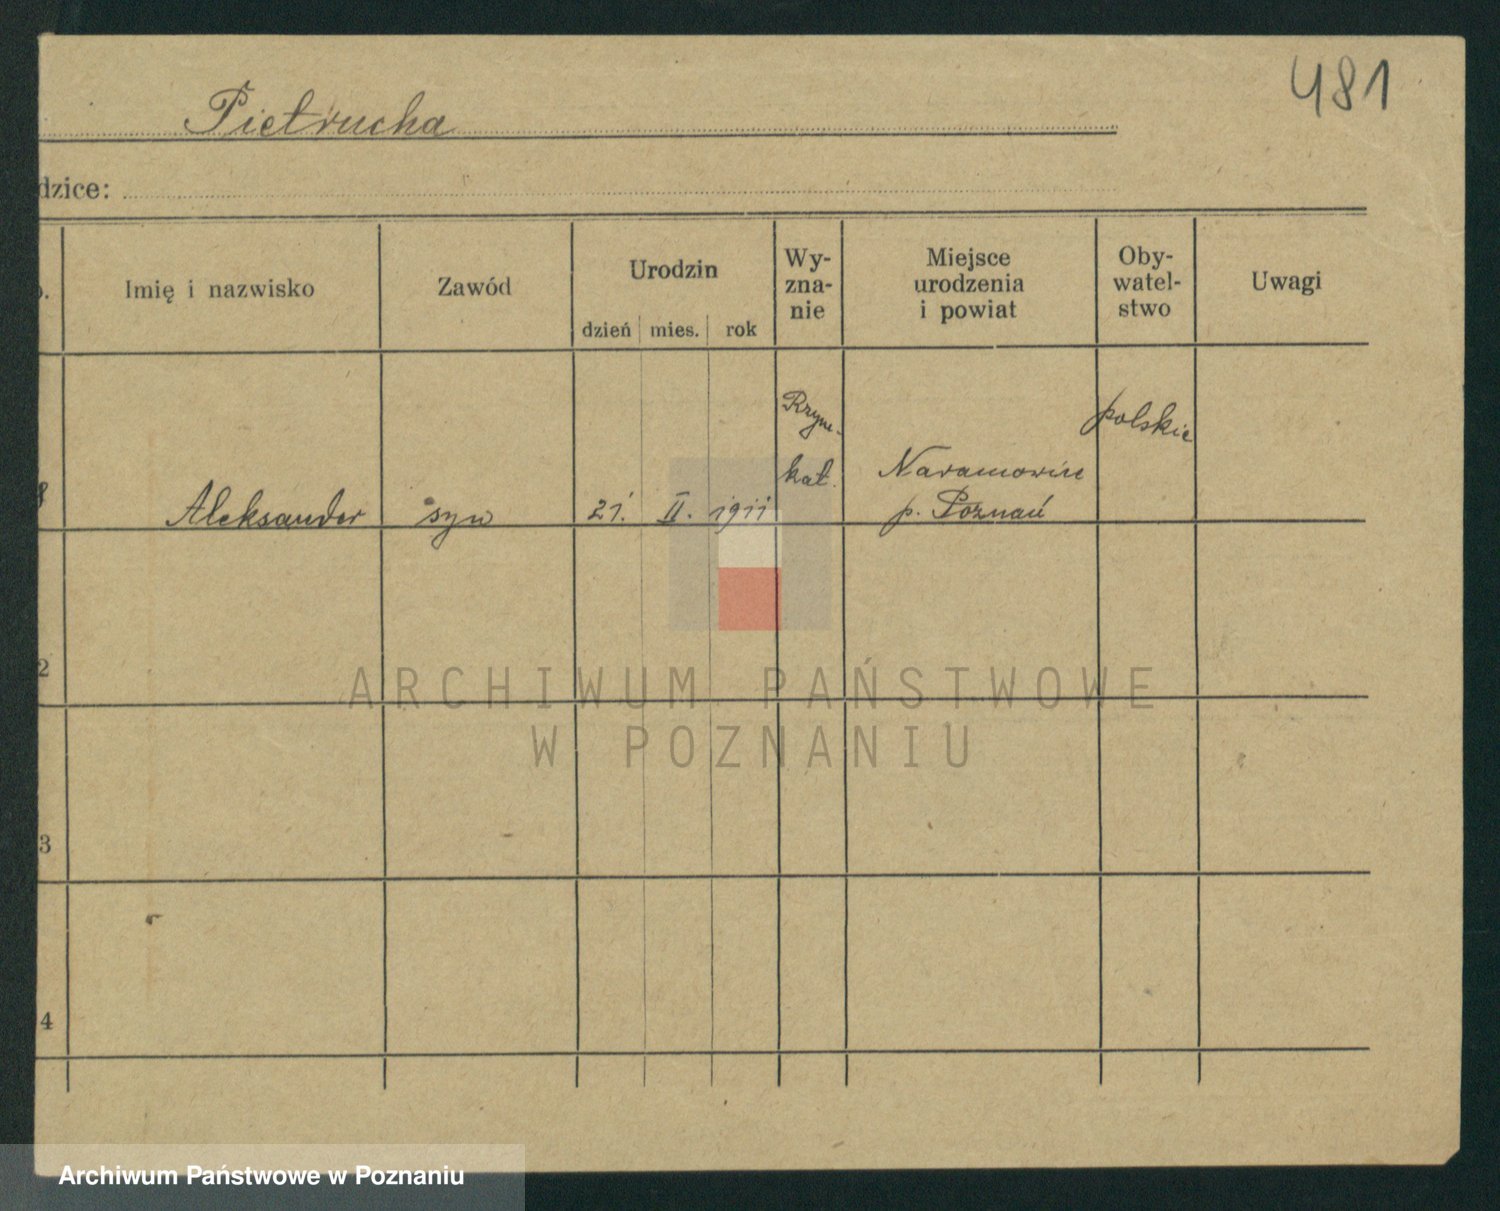 481
Pietrucha
dzice:
Imię i nazwisko
Zawód
Urodzin
dzień mies. rok
Wy-
zna-
nie
Miejsce
urodzenia
i powiat
Oby-
watel-
stwo
Uwagi
8
Aleksander syn 21. II. 1911
Rzym.
kat.
Naramowice
p. Poznań
polskie
2
3
4
ARCHIWUM PAŃSTWOWE
W POZNANIU
Archiwum Państwowe w Poznaniu